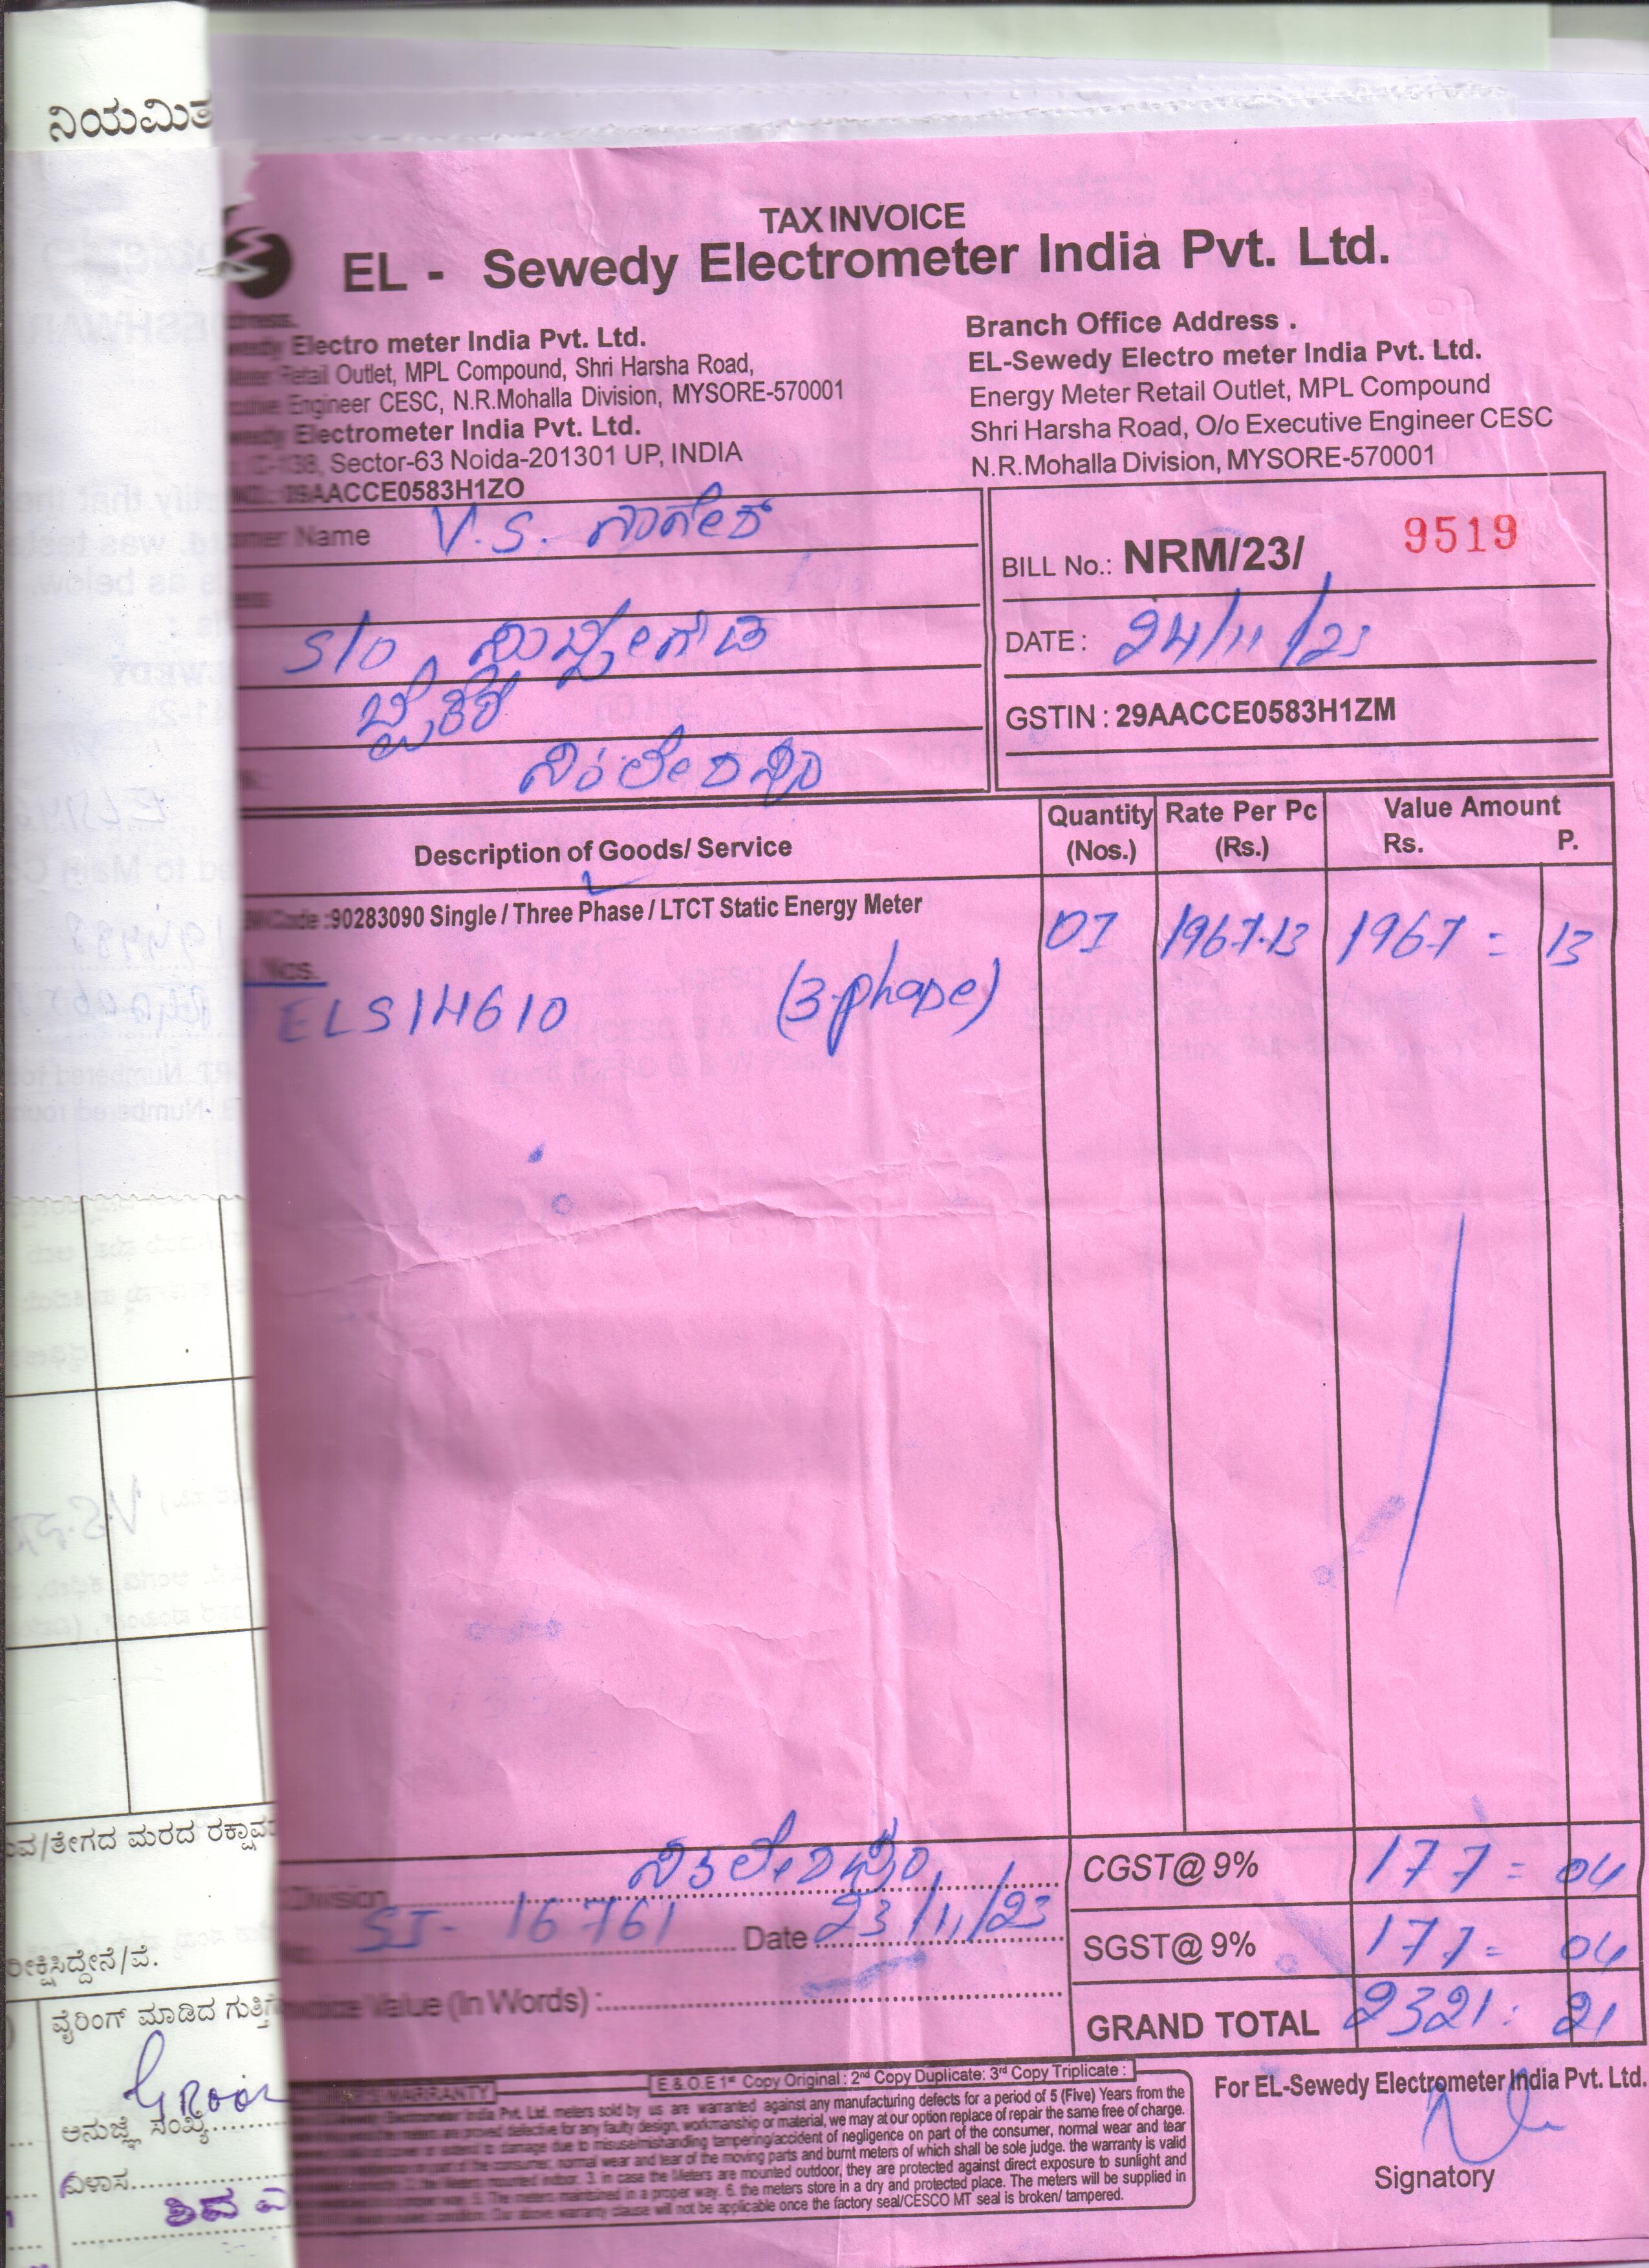 ನಿಯಮಿತ
TAX INVOICE
EL - Sewedy Electrometer India Pvt. Ltd.
Electro meter India Pvt. Ltd.
Retail Outlet, MPL Compound, Shri Harsha Road,
Engineer CESC, N.R.Mohalla Division, MYSORE-570001
Electrometer India Pvt. Ltd.
Sector-63 Noida-201301 UP, INDIA
29AACCE0583H1ZO
Branch Office Address .
EL-Sewedy Electro meter India Pvt. Ltd.
Energy Meter Retail Outlet, MPL Compound
Shri Harsha Road, O/o Executive Engineer CESC
N.R.Mohalla Division, MYSORE-570001
Name V.S. ನಾಗೇಶ್
S/O
BILL No.: NRM/23/ 9519
DATE : 24/11/23
GSTIN : 29AACCE0583H1ZM
Description of Goods/ Service Quantity (Nos.) Rate Per Pc (Rs.) Value Amount Rs. P.
:90283090 Single / Three Phase / LTCT Static Energy Meter 01 1967.13 1967 = 13
Nos.
ELS14610 (3-phase)
CGST@ 9% 177 = 04
Division
SJ- 16761 Date 23/11/23
SGST@ 9% 177 = 04
Value (In Words) :
GRAND TOTAL 2321 : 21
E.& O.E 1st Copy Original : 2nd Copy Duplicate: 3rd Copy Triplicate :
WARRANTY
meters sold by us are warranted against any manufacturing defects for a period of 5 (Five) Years from the
defective for any faulty design, workmanship or material, we may at our option replace of repair the same free of charge.
damage due to misuse/mishandling tampering/accident of negligence on part of the consumer, normal wear and tear
consumer, normal wear and tear of the moving parts and burnt meters of which shall be sole judge. the warranty is valid
indoor. 3. in case the Meters are mounted outdoor, they are protected against direct exposure to sunlight and
5. The meters maintained in a proper way. 6. the meters store in a dry and protected place. The meters will be supplied in
warranty clause will not be applicable once the factory seal/CESCO MT seal is broken/ tampered.
For EL-Sewedy Electrometer India Pvt. Ltd.
Signatory
/ತೇಗದ ಮರದ
ವೈರಿಂಗ್ ಮಾಡಿದ
ಅನುಜ್ಞೆ ಸಂಖ್ಯೆ
ವಿಳಾಸ